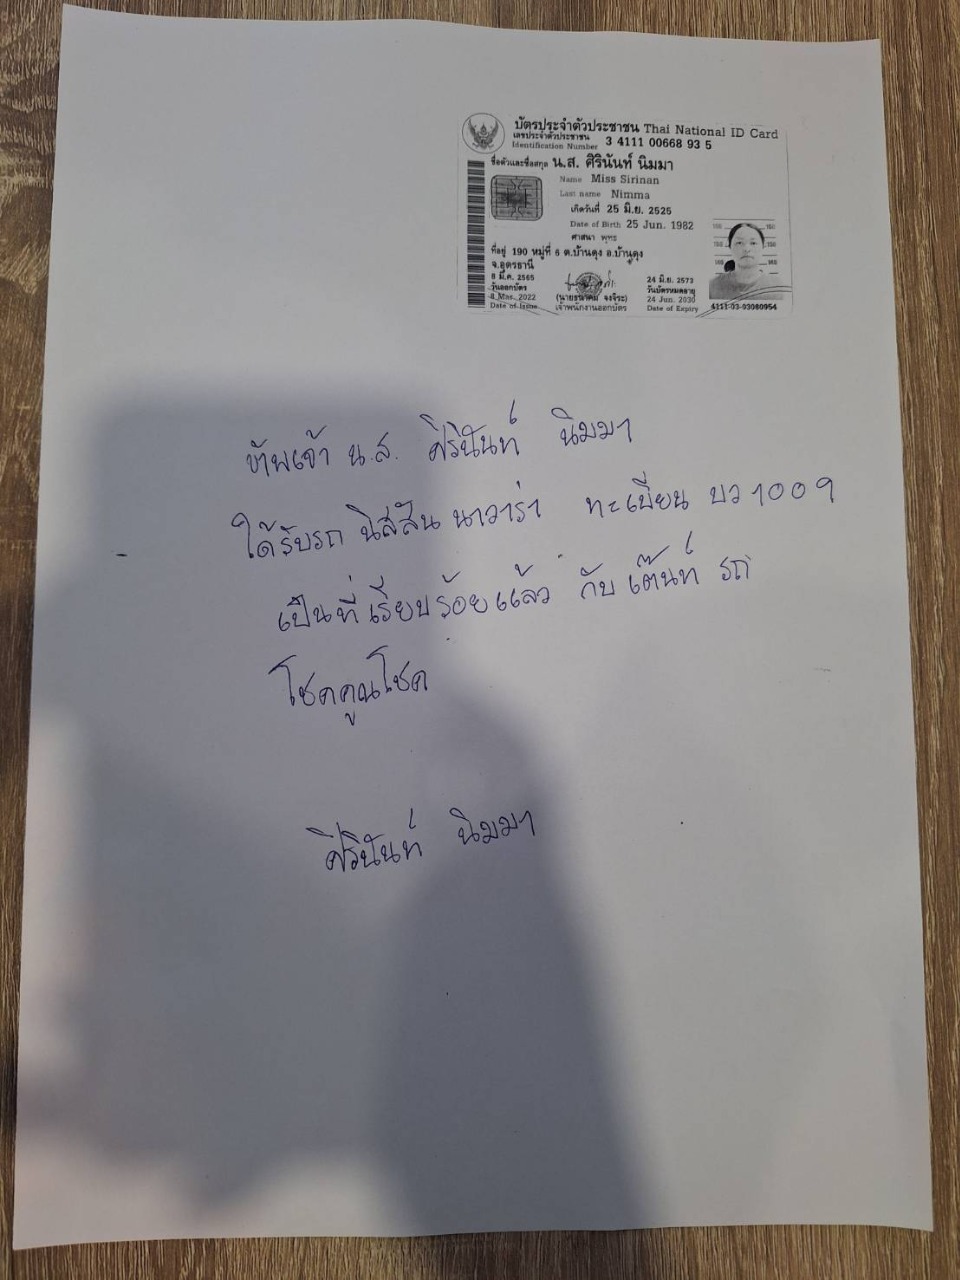 บัตรประจำตัวประชาชน Thai National ID Card
เลขประจำตัวประชาชน
Identification Number 3 4111 00668 93 5
ชื่อตัวและชื่อสกุล น.ส. ศิรินันท์ นิมมา
Name Miss Sirinan
Last name Nimma
เกิดวันที่ 25 มิ.ย. 2525
Date of Birth 25 Jun. 1982
ศาสนา พุทธ
ที่อยู่ 190 หมู่ที่ 6 ต.บ้านดุง อ.บ้านดุง
จ.อุดรธานี
8 มี.ค. 2565
วันออกบัตร
8 Mar. 2022
Date of Issue
เจ้าพนักงานออกบัตร
24 มิ.ย. 2573
วันบัตรหมดอายุ
24 Jun. 2030
Date of Expiry
4111-03-03080954
ข้าพเจ้า น.ส. ศิรินันท์ นิมมา
ได้รับรถ นิสสัน นาวาร่า ทะเบียน บว 1009
เป็นที่เรียบร้อยแล้ว กับ เต๊นท์ รถ
โชคคูณโชค
ศิรินันท์ นิมมา